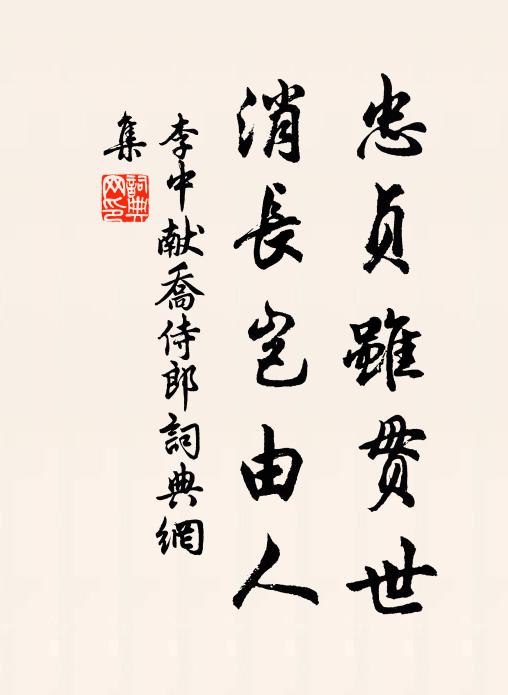 忠貞雖貫世
消長豈由人
李中献喬侍郎詞典網
集
詞典網印